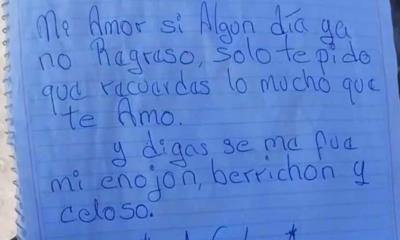 Me Amor si Algun día ya
no Ragraso, solo te pido
qua racuardas lo mucho que
te Amo.
y digas se ma fua
mi enojon, berrichon y
celoso.